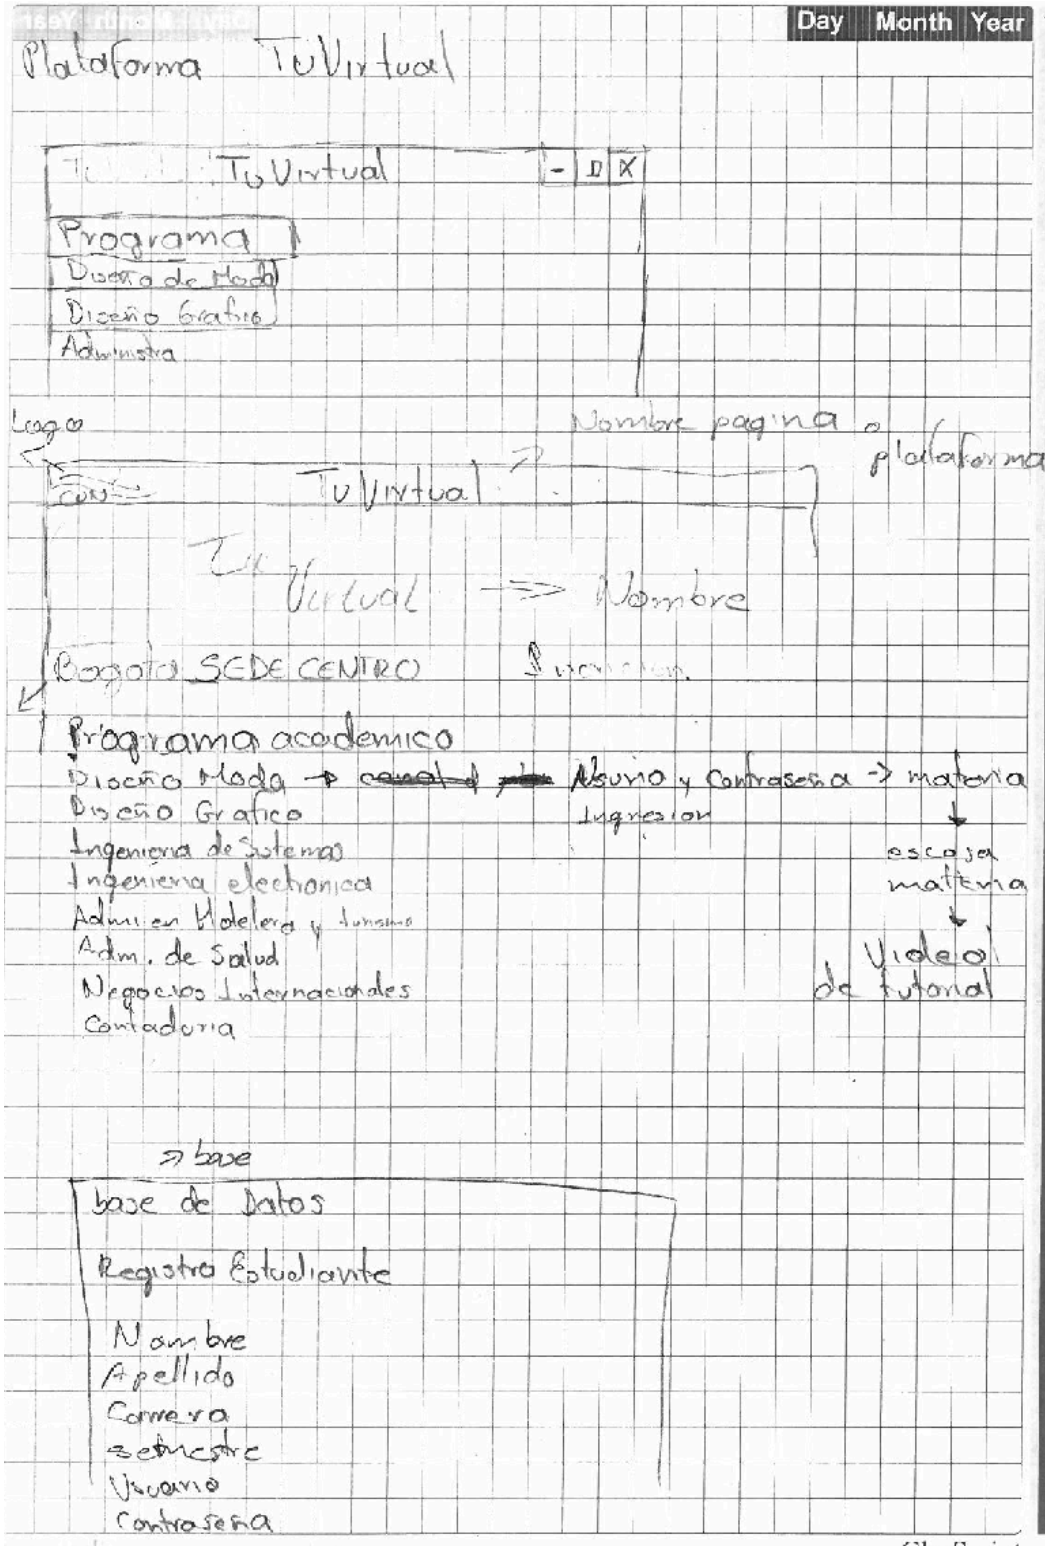 Day Month Year
Plataforma TuVirtual
TuVirtual - X
Programa
Diseño de Moda
Diseño Grafico
Administra
Logo
Nombre pagina o
plataforma
CUN TuVirtual
Tu
Virtual => Nombre
Bogota SEDE CENTRO
Programa academico
Diseño Moda → Usurio y Contraseña -> materia
Diseño Grafico Ingresion
Ingenieria de Sistemas escoja
Ingenieria electronica materia
Admi en Hotelera y turismo
Adm. de Salud Video
Negocios Internacionales de tutorial
Contaduria
base
base de Datos
Registro Estudiante
Nombre
Apellido
Carrera
semestre
Usuario
Contraseña